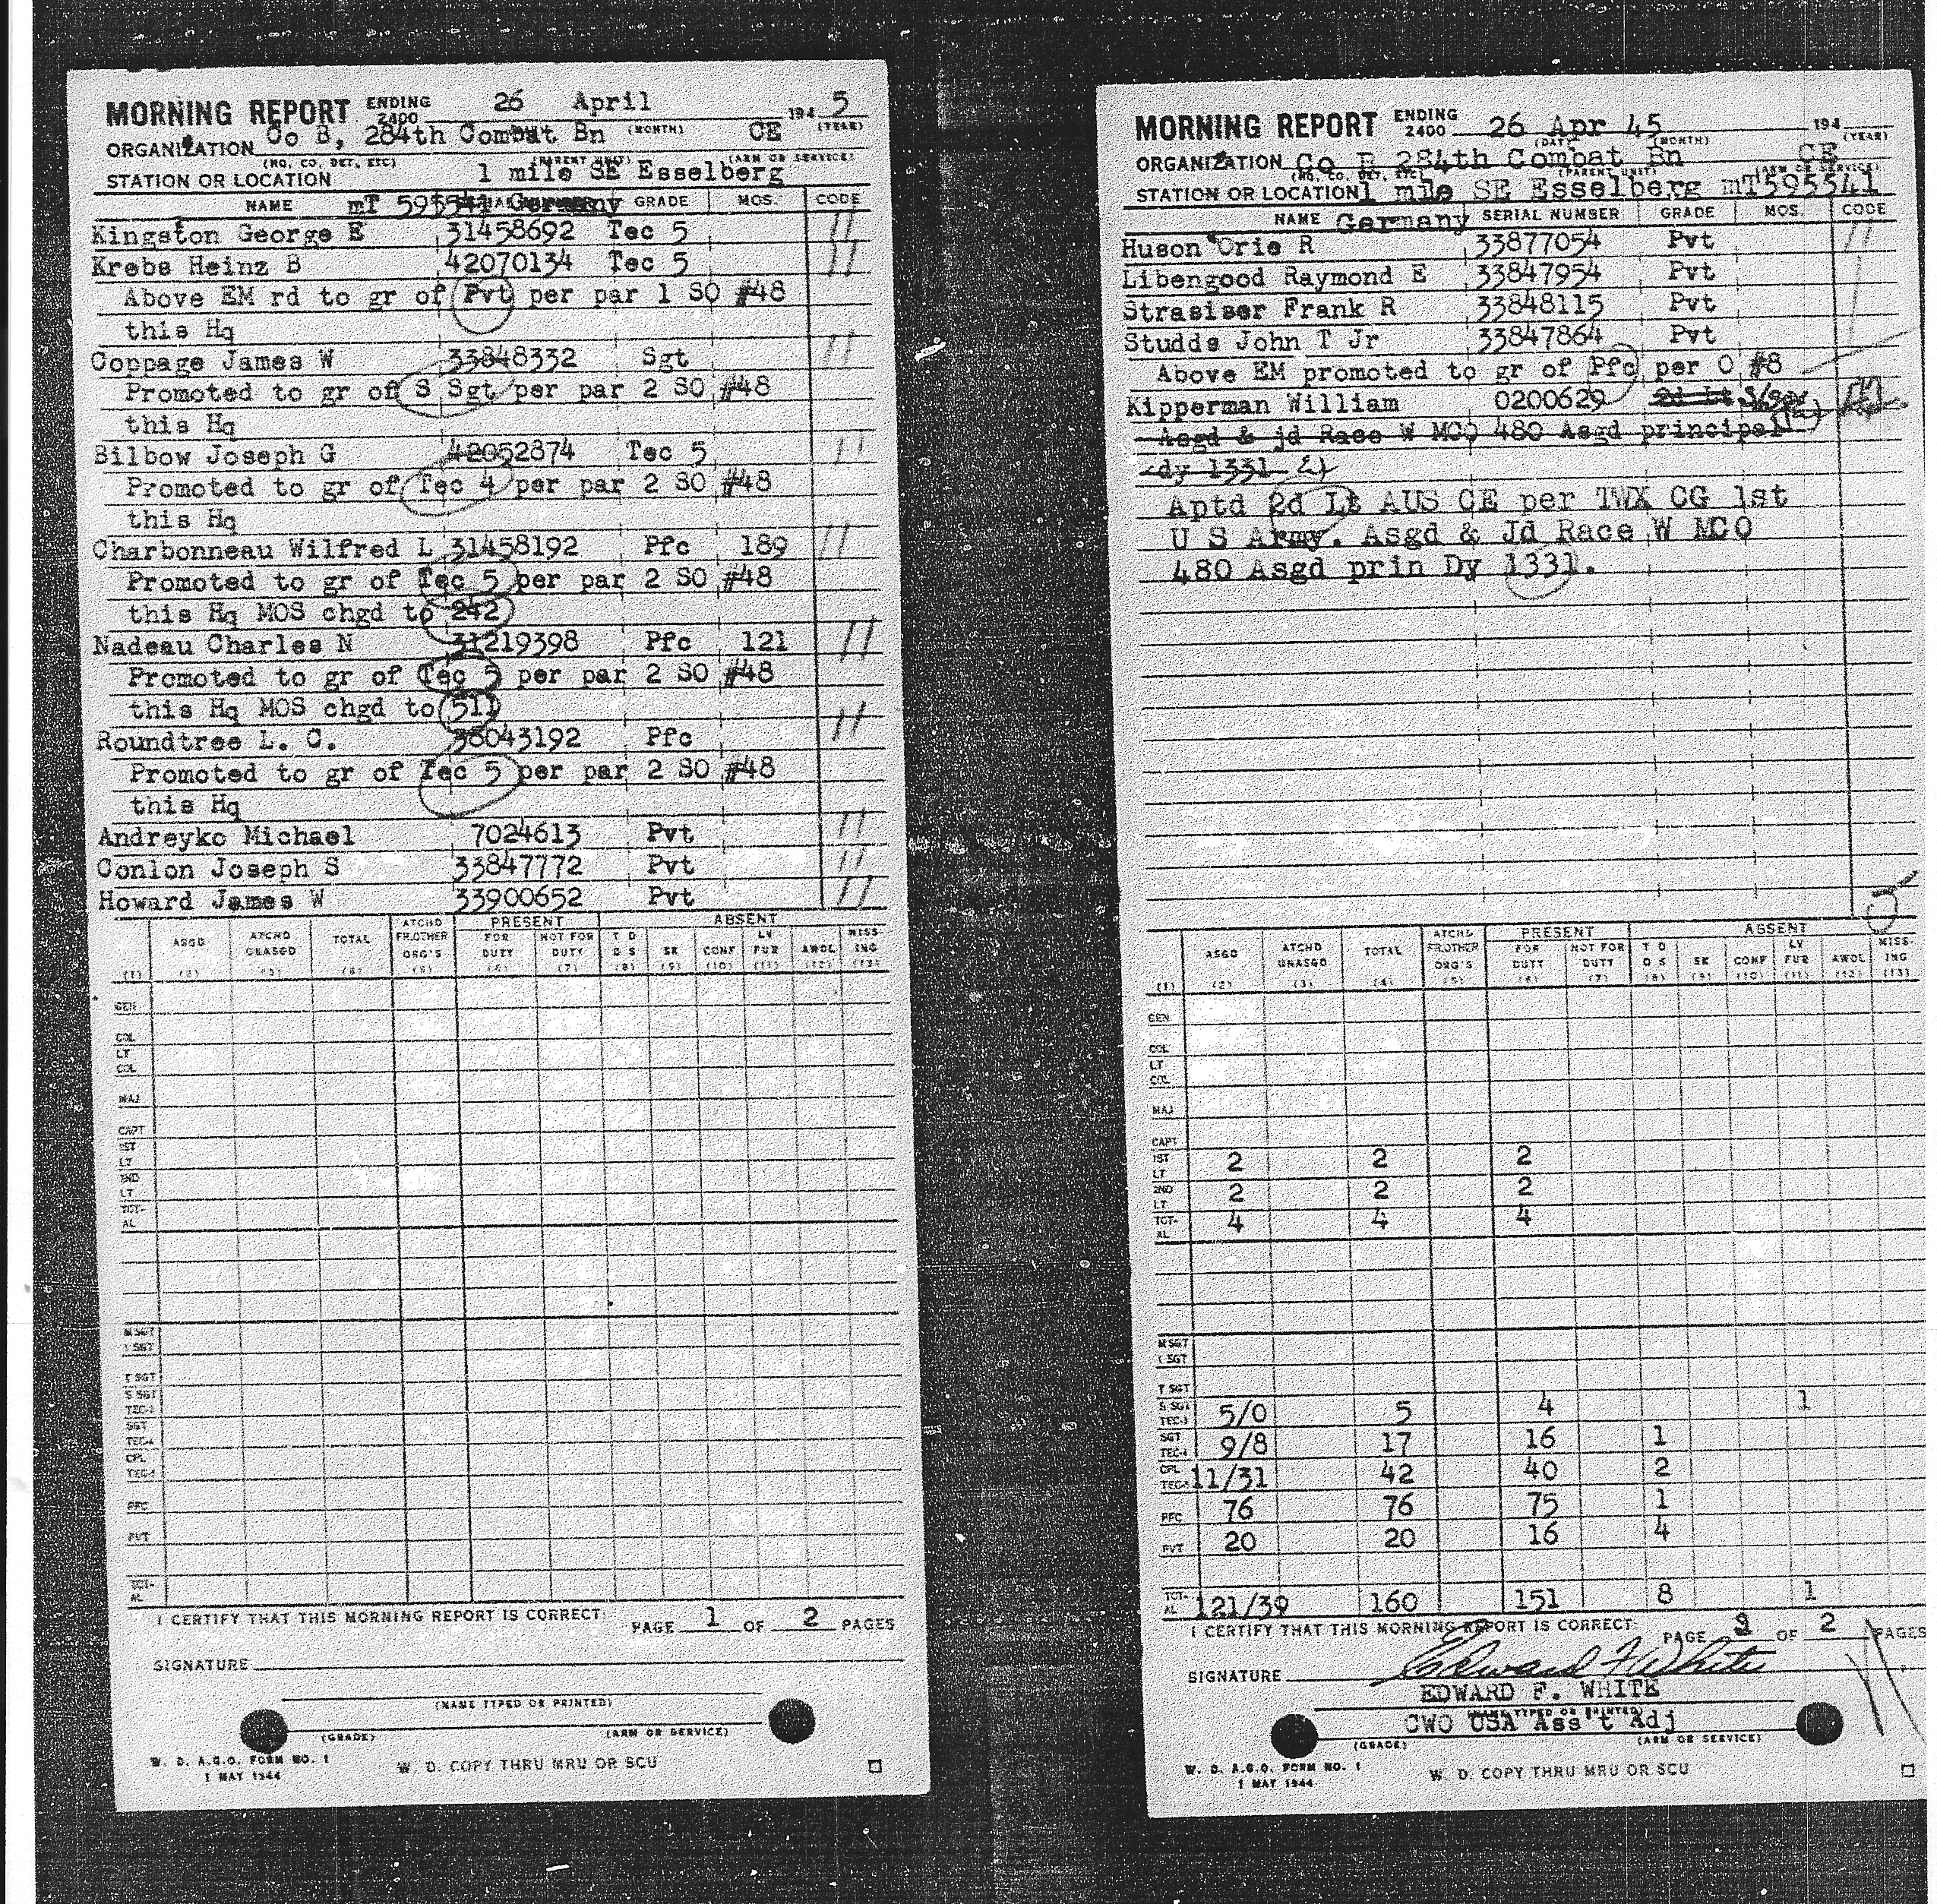 MORNING REPORT ENDING 2400 26 April 194 5
(MONTH) (YEAR)
ORGANIZATION Co B, 284th Combat Bn CE
(NO, CO, DET, ETC) (PARENT UNIT) (ARM OR SERVICE)
STATION OR LOCATION 1 mile SE Esselberg
NAME mT 595541 Germany GRADE MOS. CODE
Kingston George E 31458692 Tec 5 //
Krebs Heinz B 42070134 Tec 5 //
Above EM rd to gr of Pvt per par 1 SO #48
this Hq
Coppage James W 33848332 Sgt //
Promoted to gr of S Sgt per par 2 SO #48
this Hq
Bilbow Joseph G 42052874 Tec 5 //
Promoted to gr of Tec 4 per par 2 SO #48
this Hq
Charbonneau Wilfred L 31458192 Pfc 189 //
Promoted to gr of Tec 5 per par 2 SO #48
this Hq MOS chgd to 242
Nadeau Charles N 31219398 Pfc 121 //
Promoted to gr of Tec 5 per par 2 SO #48
this Hq MOS chgd to 511
Roundtree L. C. 38043192 Pfc //
Promoted to gr of Tec 5 per par 2 SO #48
this Hq
Andreyko Michael 7024613 Pvt //
Conlon Joseph S 33847772 Pvt //
Howard James W 33900652 Pvt //
ATCHD PRESENT ABSENT
ASGD ATCHD UNASGD TOTAL FR.OTHER ORG'S FOR DUTY NOT FOR DUTY T D D S SK CONF LV FUR AWOL MISS-ING
(1) (2) (3) (4) (5) (6) (7) (8) (9) (10) (11) (12) (13)
GEN
COL
LT
COL
MAJ
CAPT
1ST
LT
2ND
LT
TOT-
AL
M SGT
1 SGT
T SGT
S SGT
TEC-3
SGT
TEC-4
CPL
TEC-5
PFC
PVT
TOT-
AL
I CERTIFY THAT THIS MORNING REPORT IS CORRECT:
PAGE 1 OF 2 PAGES
SIGNATURE
(NAME TYPED OR PRINTED)
(GRADE) (ARM OR SERVICE)
W. D. A.G.O. FORM NO. 1
1 MAY 1944
W. D. COPY THRU MRU OR SCU
MORNING REPORT ENDING 2400 26 Apr 45 194
(DATE) (MONTH) (YEAR)
ORGANIZATION Co B 284th Combat Bn CE
(NO, CO, DET, ETC) (PARENT UNIT) (ARM OR SERVICE)
STATION OR LOCATION 1 mile SE Esselberg mT595541
NAME Germany SERIAL NUMBER GRADE MOS. CODE
Huson Orie R 33877054 Pvt //
Libengood Raymond E 33847954 Pvt
Strasiser Frank R 33848115 Pvt
Studds John T Jr 33847864 Pvt
Above EM promoted to gr of Pfc per O #8
Kipperman William 0200629 2d Lt S/Sgt
Asgd & jd Race W MCO 480 Asgd principal
dy 1331
Aptd 2d Lt AUS CE per TWX CG 1st
U S Army. Asgd & Jd Race W MCO
480 Asgd prin Dy 1331.
ATCHD PRESENT ABSENT
ASGD ATCHD UNASGD TOTAL FR.OTHER ORG'S FOR DUTY NOT FOR DUTY T D D S SK CONF LV FUR AWOL MISS-ING
(1) (2) (3) (4) (5) (6) (7) (8) (9) (10) (11) (12) (13)
GEN
COL
LT
COL
MAJ
CAPT
1ST LT 2 2 2
2ND LT 2 2 2
TOT-AL 4 4 4
M SGT
1 SGT
T SGT
S SGT TEC-3 5/0 5 4 1
SGT TEC-4 9/8 17 16 1
CPL TEC-5 11/31 42 40 2
PFC 76 76 75 1
PVT 20 20 16 4
TOT-AL 121/39 160 151 8 1
I CERTIFY THAT THIS MORNING REPORT IS CORRECT:
PAGE 2 OF 2 PAGES
SIGNATURE Edward F White
EDWARD F. WHITE
(NAME TYPED OR PRINTED)
CWO USA Ass't Adj
(GRADE) (ARM OR SERVICE)
W. D. A.G.O. FORM NO. 1
1 MAY 1944
W. D. COPY THRU MRU OR SCU